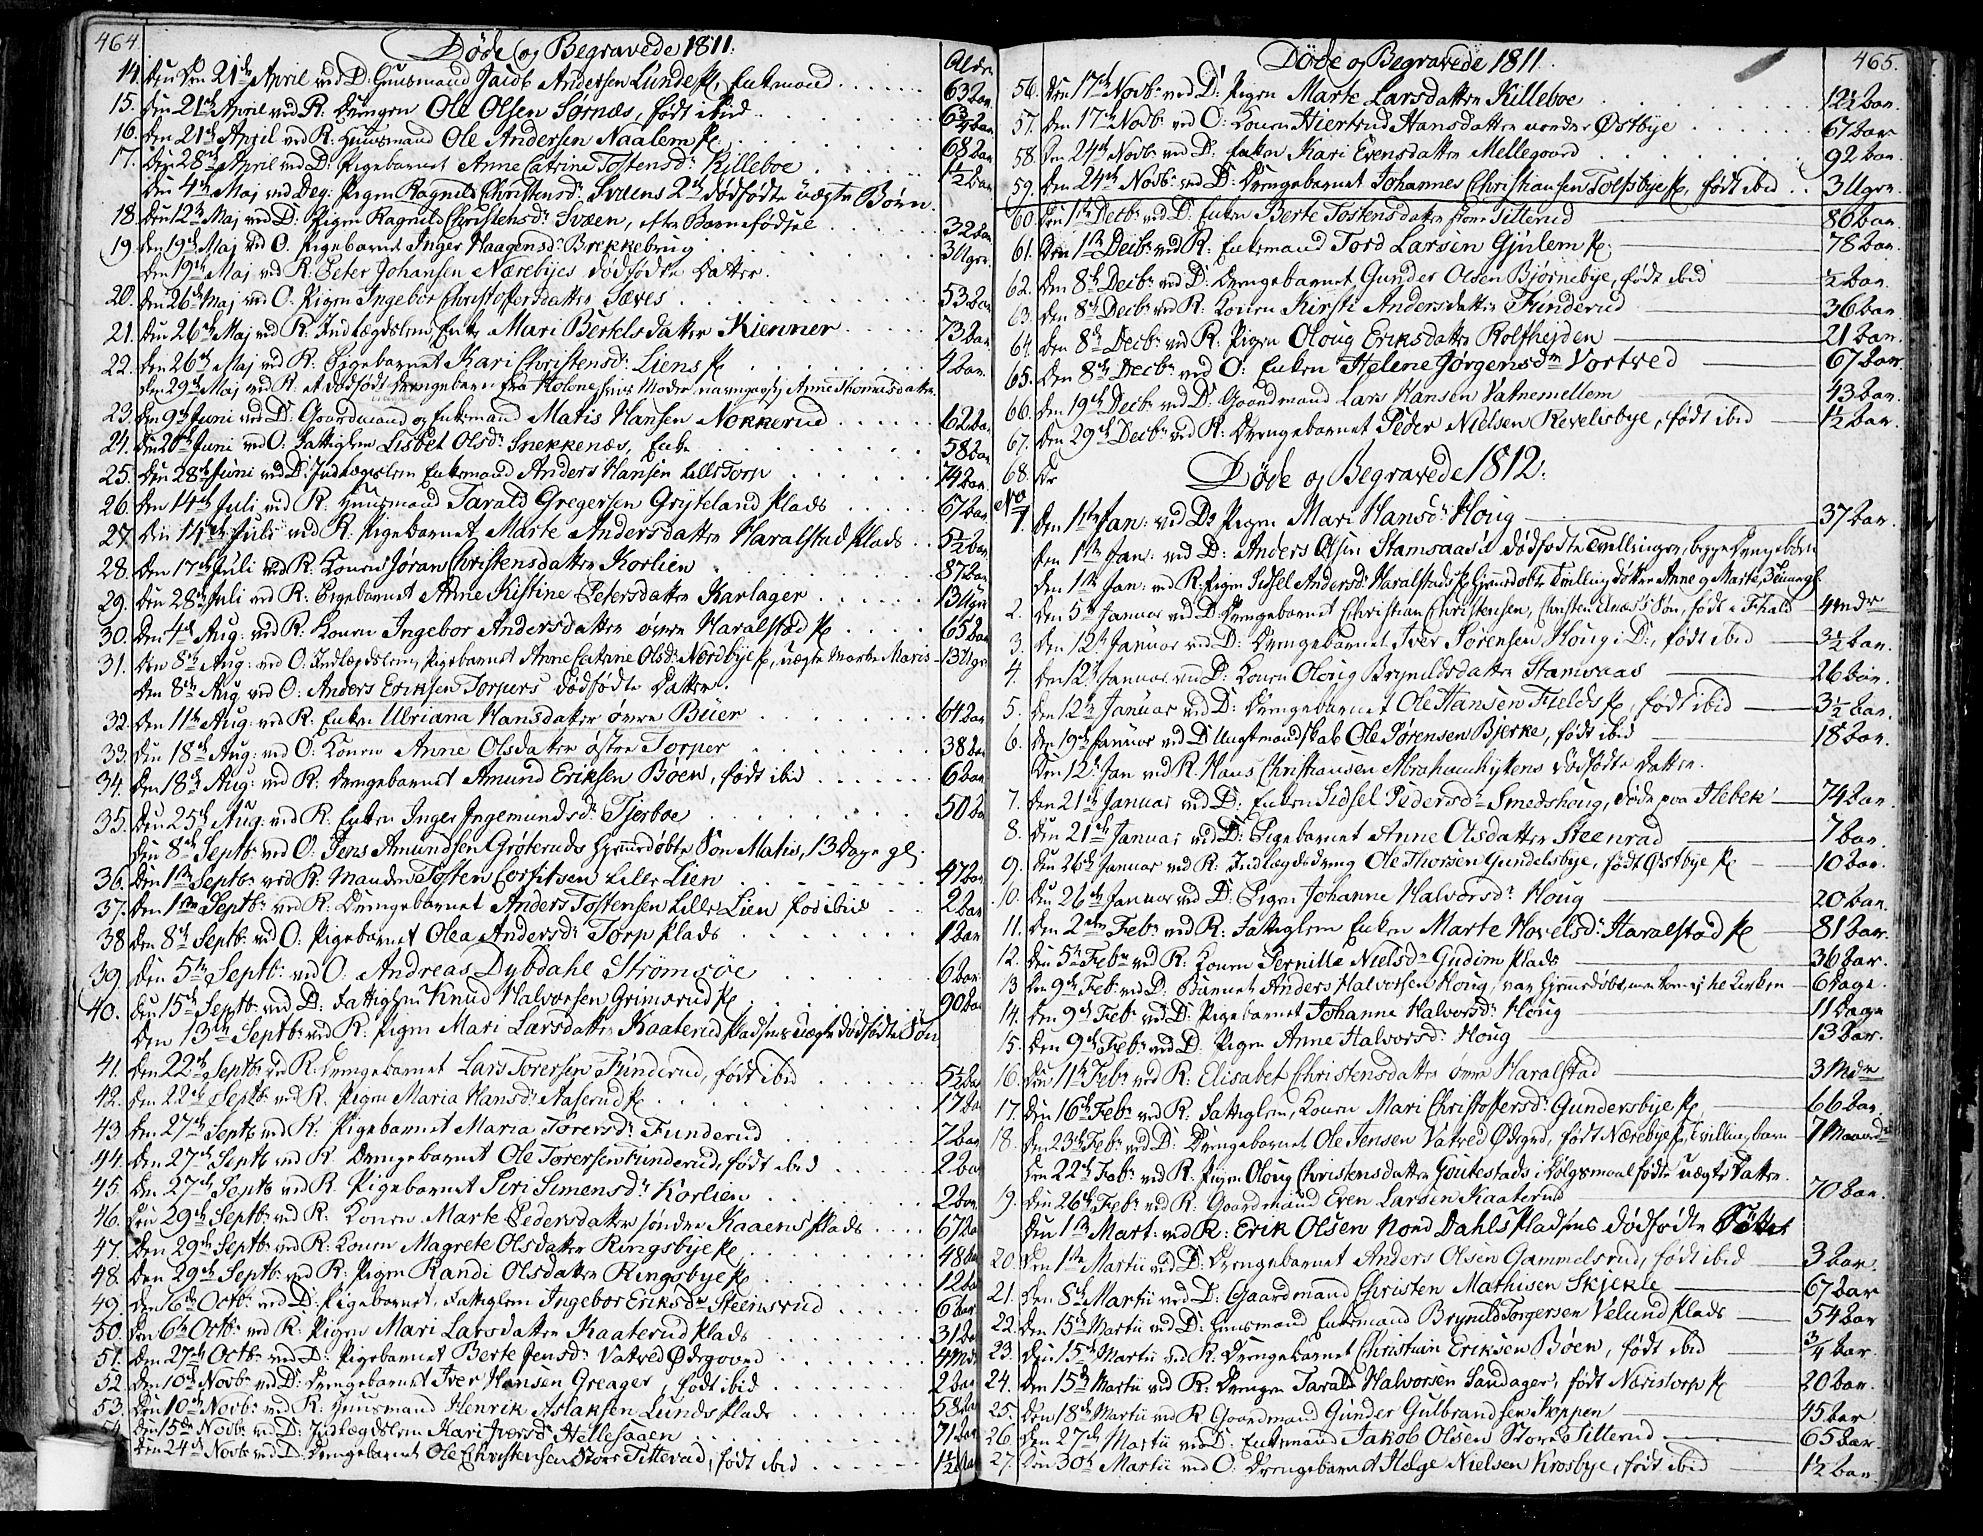 464.
Døde og Begravede 1811.
Alder
14. den 21de April ved D: Huusmand Jacob Andersen Lunde Pl, Enkemand 63 Aar.
15. den 21de April ved R. Drengen Ole Olsen Sørnæs, født ibid 6¾ Aar
16. den 21de April ved R: Huusmand Ole Andersen Naalem Pl 68 Aar
17. den 28de April ved D: Pigebarnet Anne Catrine Tostensdr Killeboe 1½ Aar
den 4de Maj ved Deg: Pigen Ragnild Christensdr Svæens 2de dødfødte uægte Børn.
18. den 12te Maj ved D: Pigen Ragnild Christensdr Svæen, efter Barnefødsel 32 Aar
19. den 19de Maj ved O. Pigebarnet Inger Haagensdr Brekkebrug 3 Uger.
den 19de Maj ved R: Peter Johansen Nærebyes dødfødte Datter.
20. den 26de Maj ved O. Pigen Ingebor Christophersdatter Sæves 53 Aar
21. den 26de Maj ved R: Indlægdslem, Enke Mari Bertelsdatter Kienner 73 Aar
22. den 26de Maj ved R: Pigebarnet Kari Christensdr Liens Pl 4 Aar
den 29de Maj ved R. et dødfødt Drengebarn fra Moderen navngaves Anne Thomesdatter
23. den 9de Juni ved D: Gaardmand og Enkemand Matis Hansen Nokkerud 62 Aar
24. den 20de Juni ved O. Fattiglem Lisbet Olsdr Snekkenæs, Enke 58 Aar
25. den 28de Juni ved D: Indlægdslem Enkemand Anders Hansen Lille Torp 74 Aar
26. den 14de Juli ved R. Huusmand Tarald Gregersen Gryteland Plads 67 Aar
27. den 14de Juli ved R. Pigebarnet Marte Andersdatter Haralstad Plads 5½ Aar
28. den 17de Juli ved R. Konen Jøran Christensdatter Korlien 87 Aar
29. den 28de Juli ved R. Pigebarnet Anne Kistine Petersdatter Karlager 13 Uger
30. den 4de Aug: ved R: Konen Ingebor Andersdatter øvre Haralstad Pl 65 Aar
31. den 8de Aug: ved O: Indlægdslem, Pigebarnet Anne Catrine Olsdr Nordbye Pl, uægte 13 Uger
den 8de Aug ved O: Anders Eriksen Torpers dødfødte Datter.
32. den 11te Aug: ved R: Enken Ulriana Hansdatter øvre Büer 64 Aar
33. den 18de Aug: ved O: Konen Anne Olsdatter østre Torper 38 Aar
34. den 18de Aug: ved R: Drengebarnet Amund Eriksen Bøen, født ibid 6 Aar
35. den 25de Aug. ved R. Enken Inger Ingemundsdr Tjerboe 50 Aar
den 8de Septb: ved O: Jens Amundsen Grøteruds hjemmedøbte Søn Matis, 13 Dage gl.
36. den 1ste Septb: ved R: Manden Tosten Corfitsen Lille Lien 47 Aar
37. den 1ste Septb: ved R: Drengebarnet Anders Tostensen Lille Lien fød ibid 2 Aar
38 den 8de Septb: ved O: Pigebarnet Olea Andersdr Torp Plads 1 Aar
39. den 5te Septb: ved O. Andreas Dybdahl Strømsøe 6 Aar
40. den 15de Septb: ved D: Fattiglem Knud Halvorsen Grimsrud Pl 90 Aar
den 13de Septb: ved R: Pigen Mari Larsdatter Kaaterud Pladsens uægte dødfødte Søn
41. den 22de Septb: ved R. Drengebarnet Lars Torersen Funderud, født ibid 5½ Aar
42. den 22de Septb: ved R. Pigen Maria Hansdr Aaserud Pl 17 Aar
43. den 27de Septb ved R: Pigebarnet Maria Torersdr Funderud 7 Aar
44. den 27de Septb ved R. Drengebarnet Ole Torersen Funderud, født ibid 2 Aar
45. den 27de Septb ved R. Pigebarnet Siri Simensdr Korlien 2 Aar
46. den 29de Septb: ved R: Konen Marte Pedersdatter søndre Kaaens Plads 67 Aar
47. den 29de Septb: ved R: Konen Magrete Olsdatter Ringsbye Pl 48 Aar
48. den 29de Septb: ved R: Pigen Randi Olsdatter Ringsbye Pl 12 Aar
49. den 6de Octb: ved D: Pigebarnet, Fattiglem Ingebor Eriksdr Steensrud 6 Aar
50. den 6te Octb: ved R: Pigen Mari Larsdatter Kaaterud Plads 31 Aar
51. den 27de Octb: ved D: Pigebarnet Berte Jensdr Vatved Ødegaard 4 Md
52. den 10de Novb: ved D: Drengebarnet Iver Hansen Greager, født ibid 2 Aar
53. den 10de Novb: ved R. Huusmand Henrik Aslaksen Lunds Plads 58 Aar
54. den 15de Novb: ved D: Indlægdslem Kari Iversdr Hellesaaen 71 Aar
den 24de Novb ved D: Drengebarnet Ole Christensen Store Titterud, født ibid 1½ Aar
Døde og Begravede 1811.
465.
56. den 17de Novb: ved D: Pigen Marte Larsdatter Killeboe 12½ Aar.
57. den 17de Novb: ved O: Konen Hiertrud Hansdatter nordre Østbye 67 Aar
58. den 24de Novb: ved D: Enken Kari Evensdatter Mellegaard 92 Aar
59. den 24de Novb: ved D: Drengebarnet Johannes Christiansen Tolfsbye Pl, født ibid 3 Uger
60. den 1ste Decb: ved D: Enken Berte Tostensdatter store Titterud 80 Aar
61. den 1ste Decb: ved R: Enkemand Tord Larsen Gjulem Pl 78 Aar
62. den 8de Decb: ved D: Drengebarnet Gunder Olsen Bjørnebye, født ibid ½ Aar
63. den 8de Decb: ved R: Konen Kirsti Andersdatter Funderud 36 Aar
64. den 8de Decb: ved R: Pigen Oloug Eriksdatter Rolfhejden 21 Aar
65. den 8de Decb: ved O: Enken Helene Jørgensdr Vortved 67 Aar
66. den 19de Decb: ved D: Gaardmand Lars Hansen Vatnemellem 43 Aar
67. den 29de Decb: ved R: Drengebarnet Peder Nielsen Revelsbye, født ibid 1½ Aar
68. De
Døde og Begravede 1812:
No
1. den 1ste Jan: ved D: Pigen Mari Hansdr Houg 37 Aar.
den 1ste Jan: ved D: Anders Olsen Stamsaas's dødfødte Tvillinger, begge Drengebørn
den 1ste Jan: ved R: Pigen Sidsel Andersdr Haralstads Pl hjemdøbte Tvillingdøttre Anne og Marte, 3 Uger gl.
2. den 5te Januar ved D: Drengebarnet Christian Christensen, Christen Søn, født i Frhald 4 Mdr
3. den 12te Januar ved D: Drengebarnet Iver Sørensen Houg i D:, født ibid 3½ Aar.
4. den 12te Januar ved D: Konen Oloug Bryneldsdatter Stamsaas 26 Aar.
5. den 12te Januar ved D: Drengebarnet Ole Hansen Fields Pl, født ibid 3½ Aar.
6. den 19de Januar ved D: Ungt mandskab Ole Sørensen Bjerke, født ibid 18 Aar.
den 12te Jan ved R: Hans Christiansen Abrahamhyttens dødfødte Datter.
7. den 21de Januar ved D: Enken Sidsel Pedersdr Smedshoug, døde paa Hebek 74 Aar.
8. den 21de Januar ved D: Pigebarnet Anne Olsdatter Steenrad 7 Aar.
9. den 26de Januar ved R. Indlægdsdreng Ole Thorsen Gundelsbye, født Østbye Pl 10 Aar.
10. den 26de Januar ved D: Pigen Johanne Halvorsdr Houg 20 Aar.
11. den 2den Febr: ved R: Fattiglem Enken Marte Hovelsdr Haralstad Pl 81 Aar.
12. den 5te Febr ved R: Konen Pernille Nielsdr Gudim Plads 36 Aar.
13 den 9de Feb: ved D: Barnet Anders Halvorsen Houg, var hjemdøbt, men kom ej til Kirken 6 Dage.
14. den 9de Feb: ved D: Pigebarnet Johanne Halvorsdr Houg 11 Dage
15. den 9de Feb: ved D. Pigen Anne Halvorsdr Houg 13 Aar.
16. den 11te Febr ved R: Elisabet Christensdatter øvre Haralstad 3 Mdr
17. den 16de Feb: ved R: Fattiglem, Konen Mari Christophersdr Gundersbye Pl 66 Aar
18. den 23de Feb: ved D: Drengebarnet Ole Jensen Vatved Ødegrd, født Nærebye Pl, Tvillingbarn 7 Maander
den 22de Feb: ved R: Pigen Oloug Christensdatter Goutestads i Dølgsmaal fødte uægte Datter.
19. den 26de Feb: ved R. Gaardmand Even Larsen Kaaterud 70 Aar.
den 1ste Mart: ved R: Erik Olsen Nord Dahls Pladsens dødfødte
20. den 1ste Martii ved D: Drengebarnet Anders Olsen Gammelsrud, født ibid 3 Aar.
21. den 8de Martii ved D: Gaardmand Christen Mathisen Skjekle 67 Aar
22. den 15de Martii ved D: Huusmand Enkemand Brynild Torgersen Velund Plads 54 Aar
23. den 15de Martii ved R: Drengebarnet Christian Eriksen Bøen, født ibid ¾ Aar.
24. den 15de Martii ved R: Drengen Tarald Halvorsen Sandager, født Narestorp Pl 20 Aar
25. den 18de Martii ved R Gaardmand Gunder Gulbrandsen Koppen 45 Aar
26. den 27de Martii ved D: Enkemand Jakob Olsen Store Titterud 65 Aar
27. den 30te Martii ved O: Drengebarnet Helge Nielsen Krosbye, født ibid 1½ Aar